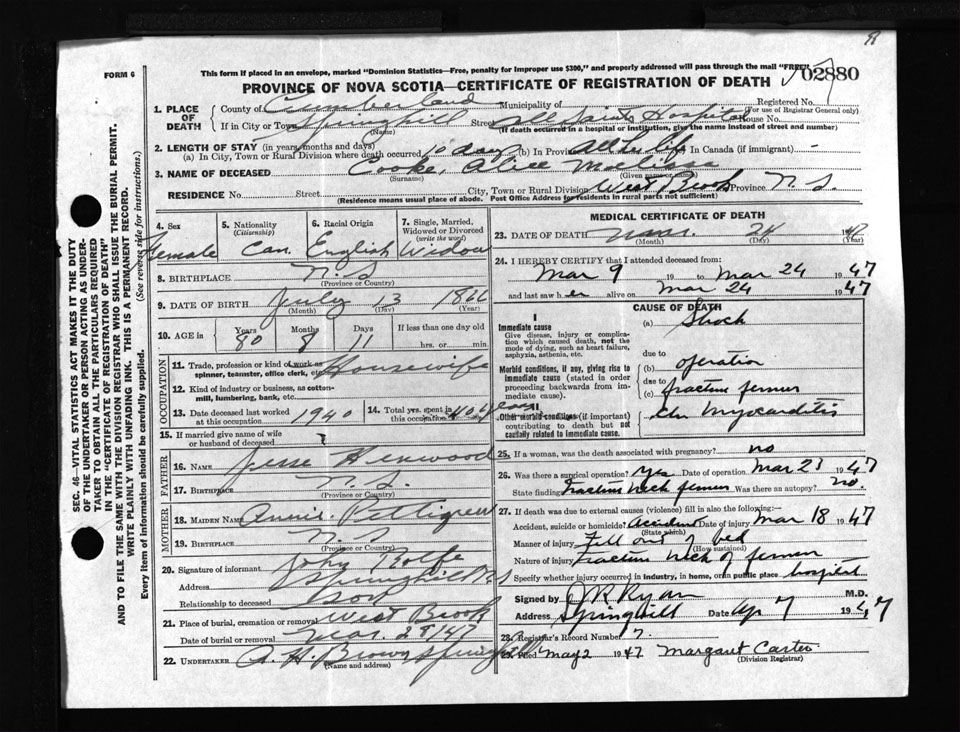 FORM 6
This form if placed in an envelope, marked "Dominion Statistics—Free, penalty for improper use $300," and properly addressed will pass through the mail "FREE"
02880
PROVINCE OF NOVA SCOTIA—CERTIFICATE OF REGISTRATION OF DEATH
1. PLACE OF DEATH
County of Cumberland Municipality of Registered No.
(For use of Registrar General only)
If in City or Town Springhill Street All Saints Hospital House No.
(Name) (If death occurred in a hospital or institution, give the name instead of street and number)
2. LENGTH OF STAY (in years, months and days)
(a) In City, Town or Rural Division where death occurred 10 days (b) In Province All her life (c) In Canada (if immigrant) -
3. NAME OF DECEASED Cooke, Alice
(Surname) (Given name or names)
RESIDENCE No. Street City, Town or Rural Division West Brook Province N.S.
(Residence means usual place of abode. Post Office Address for residents in rural parts not sufficient)
4. Sex Female
5. Nationality (Citizenship) Can.
6. Racial Origin English
7. Single, Married, Widowed or Divorced (write the word) Widow
8. BIRTHPLACE N.S
(Province or Country)
9. DATE OF BIRTH July 13 1866
(Month) (Day) (Year)
10. AGE in Years Months Days If less than one day old
80 8 11 hrs. or min.
OCCUPATION
11. Trade, profession or kind of work as spinner, teamster, office clerk, etc. Housewife
12. Kind of industry or business, as cotton-mill, lumbering, bank, etc.
13. Date deceased last worked at this occupation 1940
14. Total yrs. spent in this occupation 40 years
15. If married give name of wife or husband of deceased
FATHER
16. NAME Jesse Henwood
17. BIRTHPLACE N.S.
(Province or Country)
MOTHER
18. MAIDEN NAME Annie Pettigrew
19. BIRTHPLACE N.S
(Province or Country)
20. Signature of informant John Rolfe
Address Springhill N.S
Relationship to deceased Son
21. Place of burial, cremation or removal West Brook
Date of burial or removal Mar. 28/47
22. UNDERTAKER A. H. Brown Springhill
(Name and address)
MEDICAL CERTIFICATE OF DEATH
23. DATE OF DEATH Mar. 24 1947
(Month) (Day) (Year)
24. I HEREBY CERTIFY that I attended deceased from:
Mar 9 19 to Mar 24 1947
and last saw her alive on Mar 24 1947
CAUSE OF DEATH
I
Immediate cause
Give disease, injury or complication which caused death, not the mode of dying, such as heart failure, asphyxia, asthenia, etc.
(a) Shock
due to
Morbid conditions, if any, giving rise to immediate cause (stated in order proceeding backwards from immediate cause)
(b) operation
due to
(c) fracture femur
II
Other morbid conditions (if important) contributing to death but not causally related to immediate cause.
chr Myocarditis
25. If a woman, was the death associated with pregnancy? no
26. Was there a surgical operation? Yes Date of operation Mar 23 1947
State finding fracture neck femur Was there an autopsy? no.
27. If death was due to external causes (violence) fill in also the following:
Accident, suicide or homicide? Accident Date of injury Mar 18 1947
(State which)
Manner of injury Fell out of bed
(How sustained)
Nature of injury fracture neck of femur
Specify whether injury occurred in industry, in home, or in public place hospital
Signed by J R Ryan M.D.
Address Springhill Date Ap 7 1947
28. Registrar's Record Number 7.
29. Filed May 2 1947 Margaret Carter
(Division Registrar)
SEC. 46—VITAL STATISTICS ACT MAKES IT THE DUTY
OF THE UNDERTAKER OR PERSON ACTING AS UNDER-
TAKER TO OBTAIN ALL THE PARTICULARS REQUIRED
IN THE "CERTIFICATE OF REGISTRATION OF DEATH"
AND TO FILE THE SAME WITH THE DIVISION REGISTRAR WHO SHALL ISSUE THE BURIAL PERMIT.
WRITE PLAINLY WITH UNFADING INK. THIS IS A PERMANENT RECORD.
Every item of information should be carefully supplied. (See reverse side for instructions.)